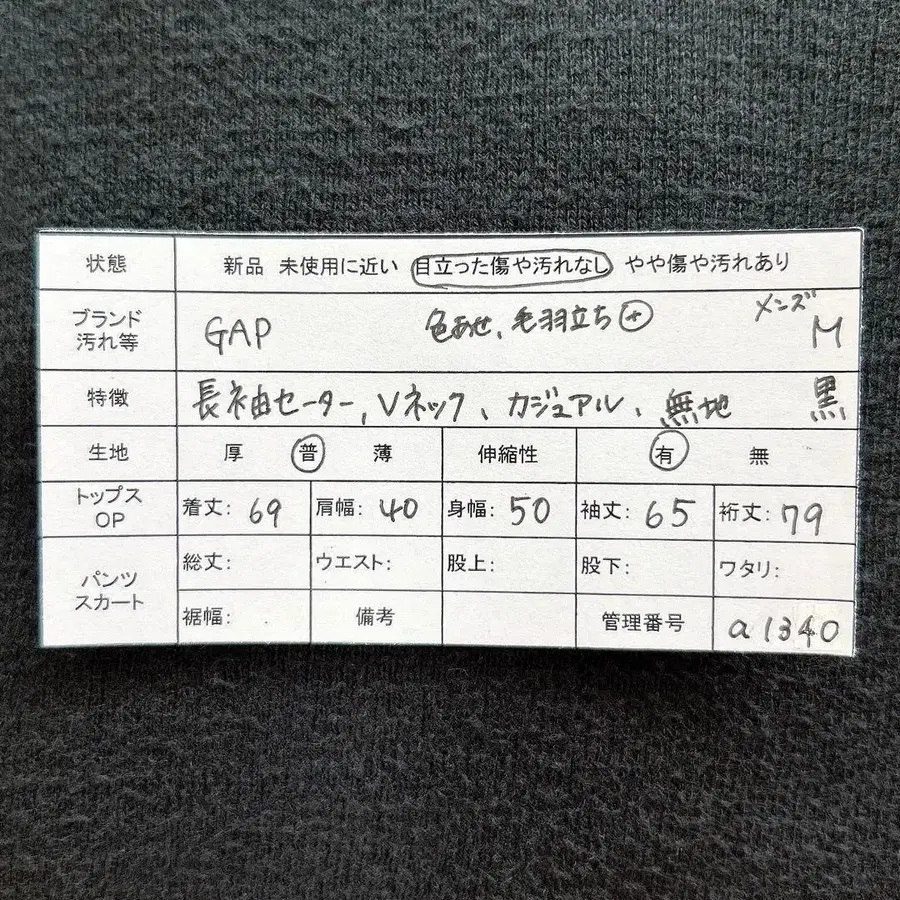 状態 新品 未使用に近い 目立った傷や汚れなし やや傷や汚れあり
ブランド 汚れ等 GAP 色あせ、毛羽立ち㊉ メンズ M
特徴 長袖セーター、Vネック、カジュアル、無地 黒
生地 厚 普 薄 伸縮性 有 無
トップス OP 着丈: 69 肩幅: 40 身幅: 50 袖丈: 65 裄丈: 79
パンツ スカート 総丈: ウエスト: 股上: 股下: ワタリ:
裾幅: 備考 管理番号 a1340